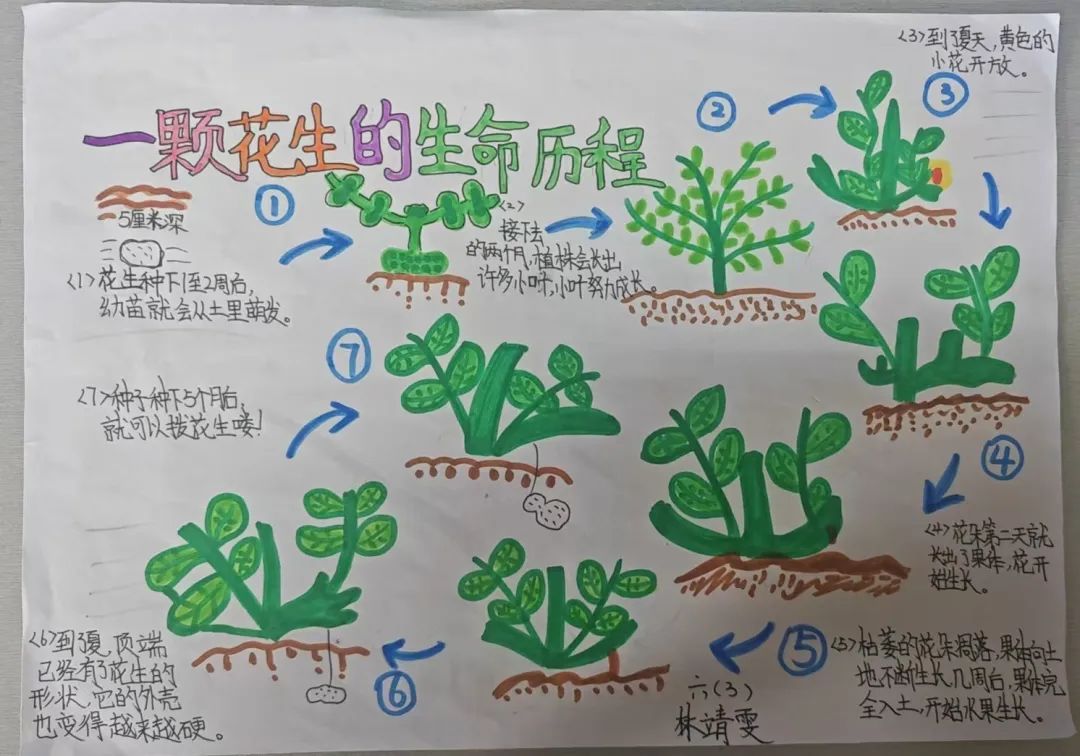 一颗花生的生命历程
①
5厘米深
<1>花生种下1至2周后,
幼苗就会从土里萌发。
②
<2>
接下去
的两个月,植株会长出
许多小叶,小叶努力成长。
③
<3>到了夏天,黄色的
小花开放。
④
<4>花朵第二天就
长出了果体,花开
始生长。
⑤
<5>枯萎的花朵凋落,果体向土
地不断生长几周后,果体完
全入土,开始水果生长。
⑥
<6>到夏,顶端
已经有了花生的
形状,它的外壳
也变得越来越硬。
⑦
<7>种子种下5个月后,
就可以拨花生喽!
六(3)
林靖雯